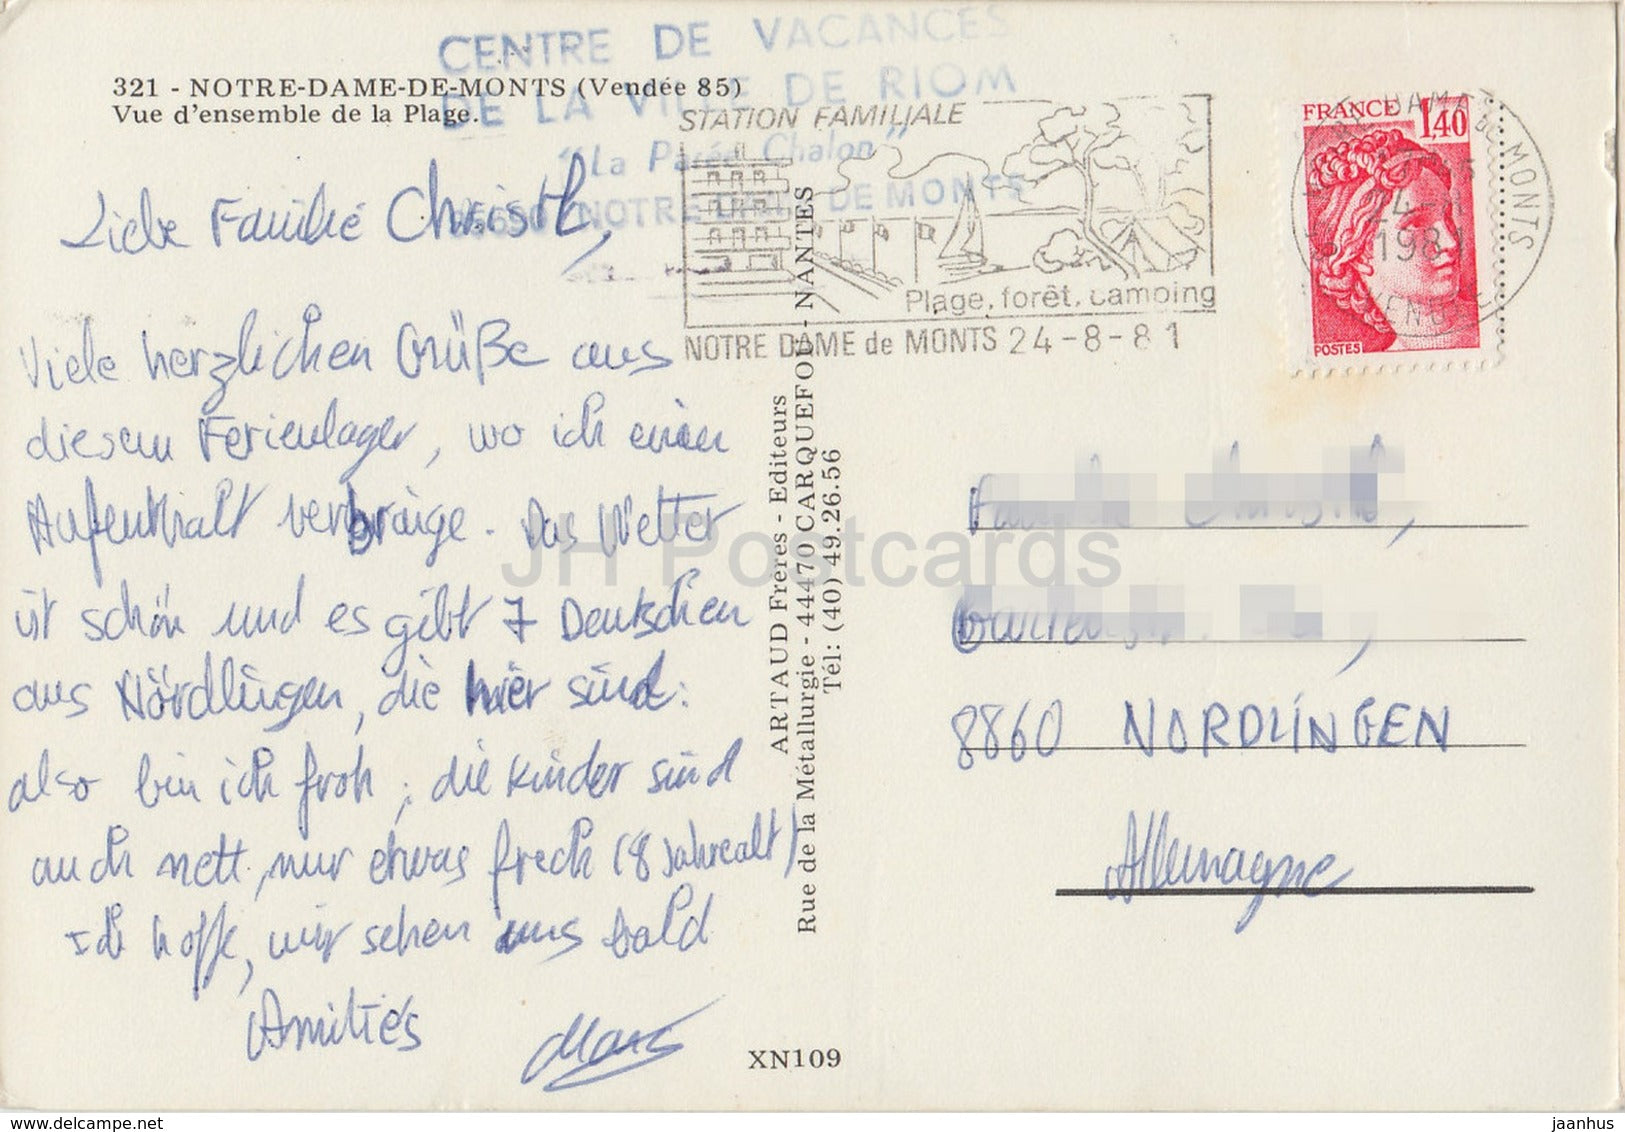 CENTRE DE VACANCES
DE LA VILLE DE RIOM
"La Parée Chalon"
NOTRE DAME DE MONTS
321 - NOTRE-DAME-DE-MONTS (Vendée 85)
Vue d'ensemble de la Plage.
STATION FAMILIALE
Plage, forêt, camping
NOTRE DAME de MONTS 24-8-81
FRANCE 1,40
POSTES
24-8
1981
MONTS
VENDEE
Liebe Familie Christl,
Viele herzlichen Grüße aus
diesem Ferienlager, wo ich einen
Aufenthalt verbringe. Das Wetter
ist schön und es gibt 7 Deutschen
aus Nördlingen, die hier sind:
also bin ich froh; die Kinder sind
auch nett, nur etwas frech (8 Jahre alt)
Ich hoffe, wir sehen uns bald
Amitiés
Marc
ARTAUD Frères - Editeurs
Rue de la Métallurgie - 44470 CARQUEFOU - NANTES
Tél: (40) 49.26.56
XN109
8860 NORDLINGEN
Allemagne
JH Postcards
delcampe.net
jaanhus